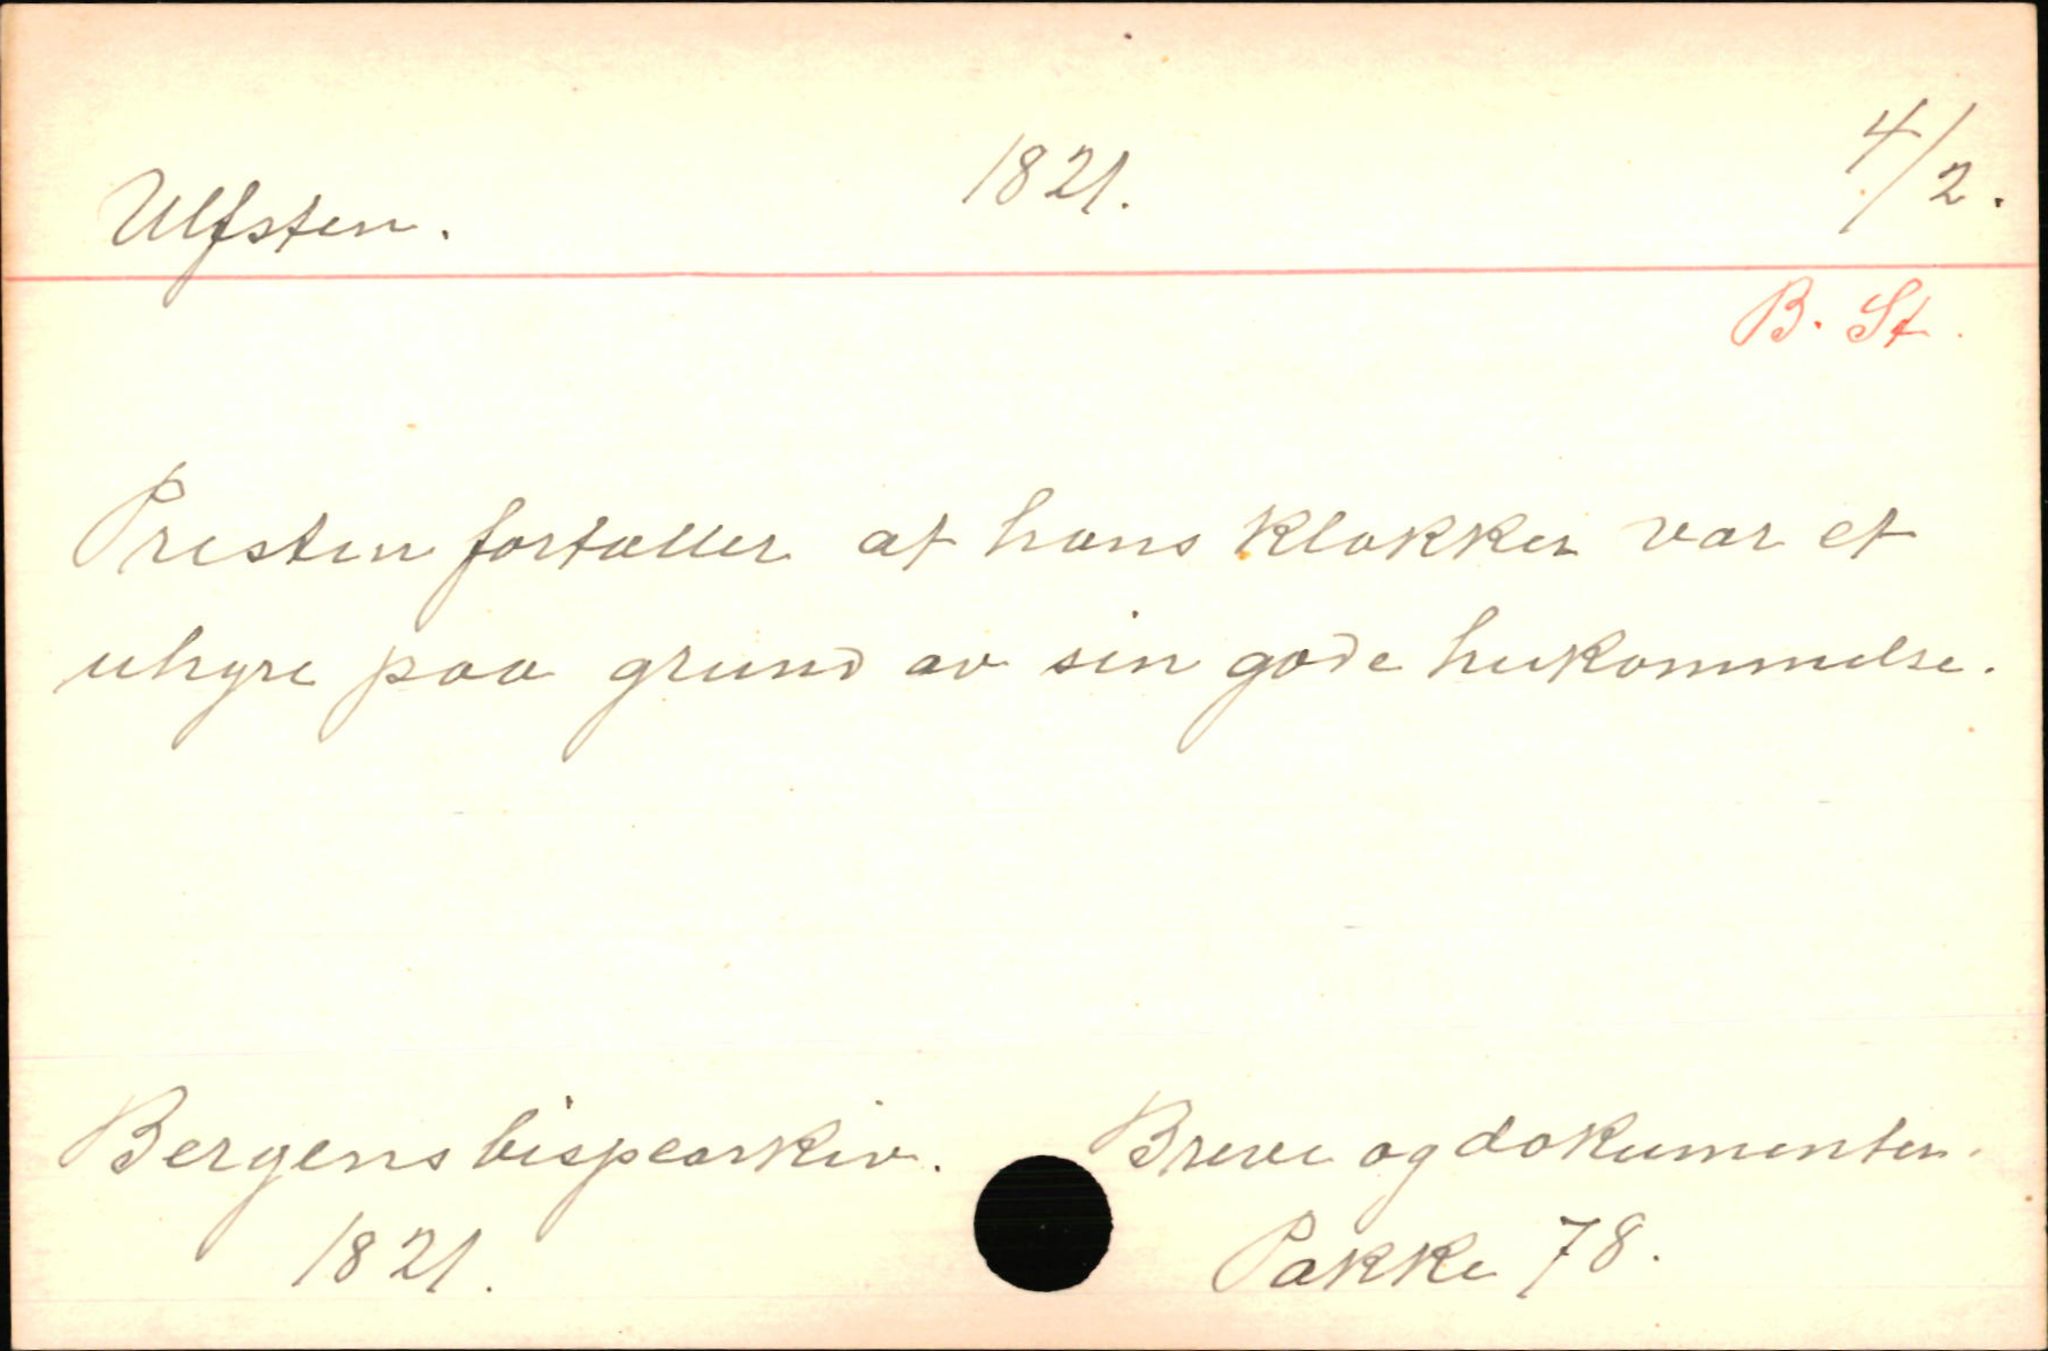 Ulfsten. 1821. 4/2.
B. St.
Presten fortæller at hans klokker var et
uhyre paa grund av sin gode hukommelse.
Bergens bispearkiv. Breve og dokumenter.
1821. Pakke 78.